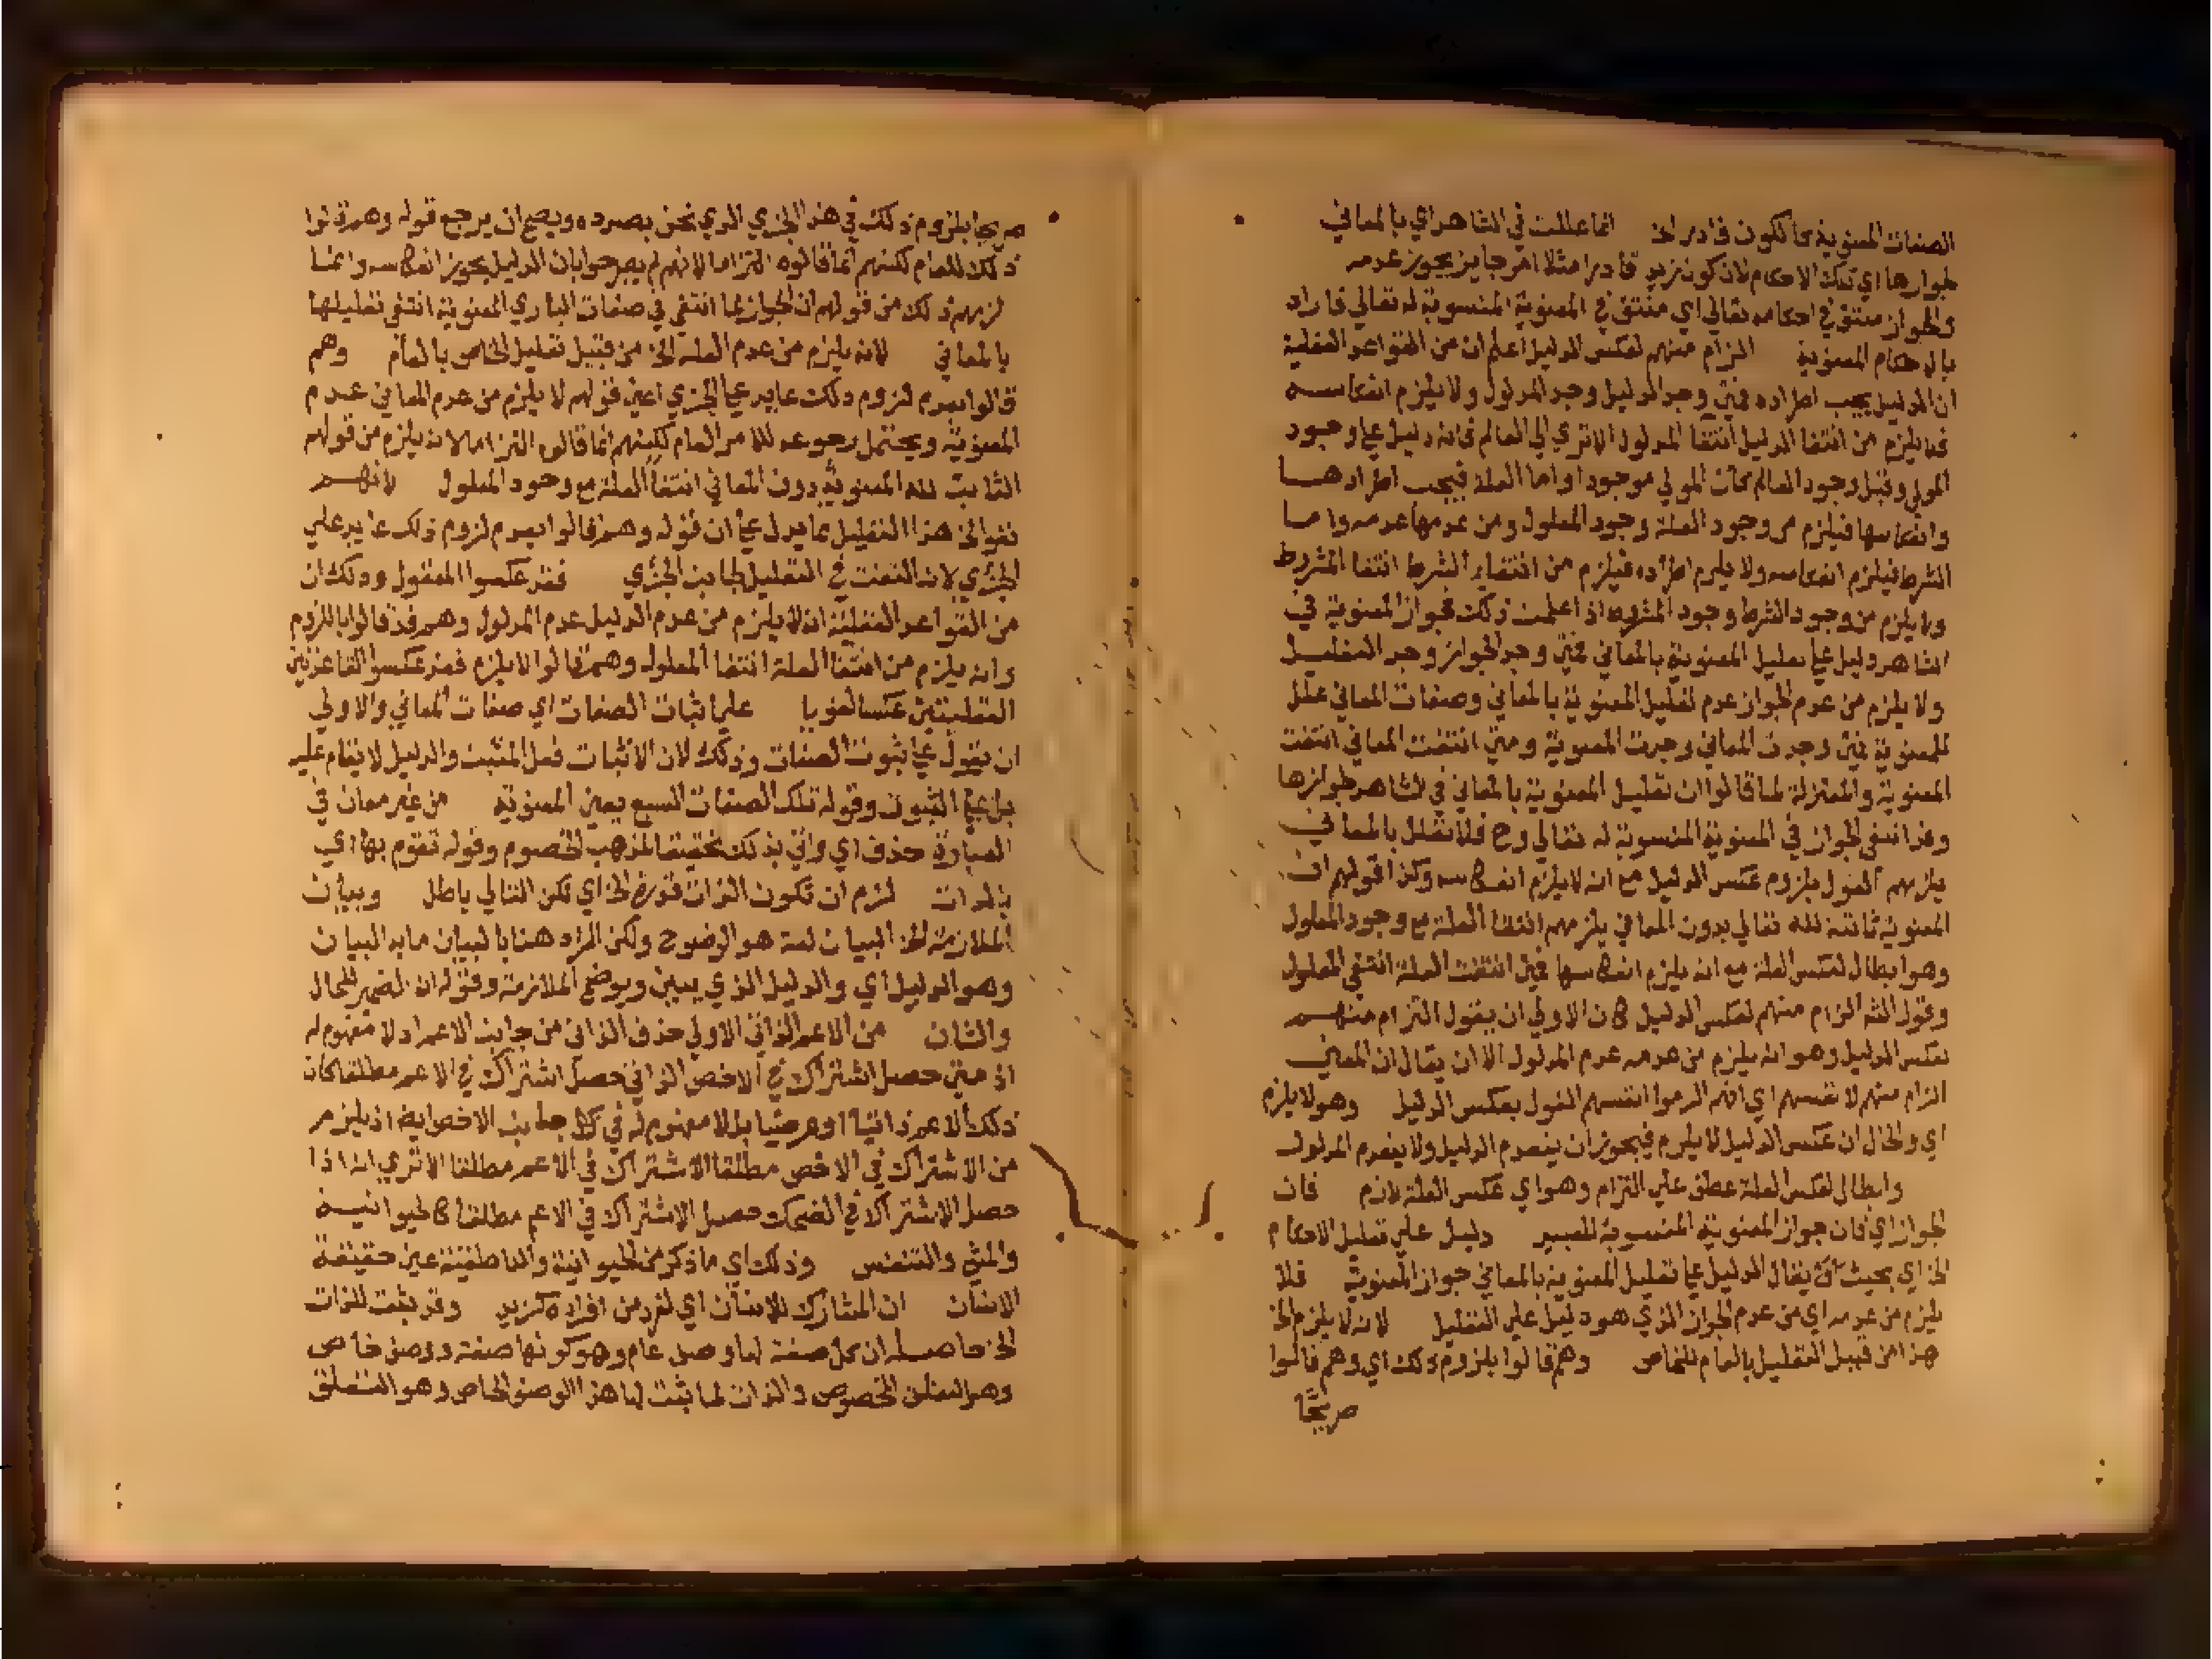 الصفات المعنوية ككون قادر الخ انما عللت في الشاهد اي بالمعاني
لجوازها اي تلك الاحكام لان كون زيد قادرا مثلا امر جايز يجوز عدمه
والجواز منتف في احكامه تعالى اي منتف في المعنوية المنسوبة له تعالى فاراد
بالاحكام المعنوية الزام منهم لعكس الدليل اعلم ان من القواعد العقلية
ان الدليل يجب اطراده فمتى وجد الدليل وجد المدلول ولا يلزم انعكاسه
فلا يلزم من انتفا الدليل انتفا المدلول الا تري الي العالم فانه دليل علي وجود
المولي وقبل وجود العالم كان المولي موجودا واما العلة فيجب اطرادها
وانعكاسها فيلزم من وجود العلة وجود المعلول ومن عدمها عدمه واما
الشرط فيلزم انعكاسه ولا يلزم اطراده فيلزم من انتفاء الشرط انتفا المشروط
ولا يلزم من وجود الشرط وجود المشروط اذا علمت ذلك فجواز المعنوية في
الشاهد دليل علي تعليل المعنوية بالمعاني فمتى وجد الجواز وجد التعليل
ولا يلزم من عدم الجواز عدم تعليل المعنوية بالمعاني وصفات المعاني علل
للمعنوية فمتى وجدت المعاني وجدت المعنوية ومتى انتفت المعاني انتفت
المعنوية والمعتزلة لما قالوا ان تعليل المعنوية بالمعاني في الشاهد لجوازها
وقد انتفى الجواز في المعنوية المنسوبة له تعالي وح فلا تعلل بالمعاني
يلزمهم القول بلزوم عكس الدليل مع انه لا يلزم انعكاسه وكذا قولهم ان
المعنوية ثابتة لله تعالي بدون المعاني يلزمهم انتفا العلة مع وجود المعلول
وهو ابطال لعكس العلة مع انه يلزم انعكاسها فمتى انتفت العلة انتفى المعلول
وقول الش الزام منهم لعكس الدليل كان الاولي ان يقول التزام منهم
لعكس الدليل وهو انه يلزم من عدمه عدم المدلول الا ان يقال ان المعنى
الزام منهم لانفسهم اي انهم الزموا انفسهم القول بعكس الدليل وهو لا يلزم
اي والحال ان عكس الدليل لا يلزم فيجوز ان ينعدم الدليل ولا ينعدم المدلول
وابطال لعكس العلة عطف علي التزام وهو اي عكس العلة لازم فان
الجواز اي فان جواز المعنوية المنسوبة للعبيد دليل علي تعليل الاحكام
الخ اي بحيث يقال الدليل علي تعليل المعنوية بالمعاني جواز المعنوية فلا
يلزم من عدمه اي من عدم الجواز الذي هو دليل علي التعليل لانه لا يلزم الخ
هذا من قبيل التعليل بالعام للخاص وهم قالوا بلزوم ذلك اي وهم قالوا
صريحًا
صريحا بلزوم ذلك في هذا الجزي الذي نحن بصدده ويصح ان يرجع قوله وهم قالوا
ذلك للعام لكنهم انما قالوه التزاما لانهم لم يصرحوا بان الدليل يجوز انعكاسه وانما
لزمهم ذلك من قولهم ان الجواز لما انتفي في صفات الباري المعنوية انتفي تعليلها
بالمعاني لانه يلزم من عدم العلة الخ من قبيل تعليل الخاص بالعام وهم
قالوا بعدم لزوم ذلك عايد علي الجزي اعني قولهم لا يلزم من عدم المعاني عدم
المعنوية ويحتمل رجوعه للامر العام لكنهم انما قالوه التزاما لانه يلزم من قولهم
الثابت لله المعنوية بدون المعاني انتفا العلة مع وجود المعلول لانهم
نفوا الخ هذا التعليل مما يدل علي ان قوله وهم قالوا بعدم لزوم ذلك عايد علي
الجزي لانه التفت في التعليل لجانب الجزي فقد عكسوا المعقول وذلك ان
من القواعد العقلية انه لا يلزم من عدم الدليل عدم المدلول وهم قد قالوا باللزوم
وانه يلزم من انتفا العلة انتفا المعلول وهم قالوا لا يلزم فقد عكسوا القاعدتين
العقليتين عكسا لغويا علي اثبات الصفات اي صفات المعاني والاولي
ان يقول علي ثبوت الصفات وذلك لان الاثبات فعل المثبت والدليل لا يقام عليه
بل علي الثبوت وقوله تلك الصفات السبع يعني المعنوية من غير معان في
العبارة حذف اي واتي بذلك تحقيقا لمذهب الخصوم وقوله تقوم بها اي
بالذات لزم ان تكون الذات قدرة الخ اي لكن التالي باطل وبيان
الملازمة الخ البيان لغة هو الوضوح ولكن المراد هنا بالبيان ما به البيان
وهو الدليل اي والدليل الذي يبين ويوضح الملازمة وقوله ان الضمير للحال
والشان من الاعم الذاتي الاولي حذف الذاتي من جانب الاعم اذ لا مفهوم له
اذ متى حصل اشتراك في الاخص الذاتي حصل اشتراك في الاعم مطلقا كان
ذلك الاعم ذاتيا او عرضيا بل لا مفهوم له في كلا جانب الاخص ايضا اذ يلزم
من الاشتراك في الاخص مطلقا الاشتراك في الاعم مطلقا الا تري انه اذا
حصل الاشتراك في الضحك حصل الاشتراك في الاعم مطلقا كالحيوانية
والمشي والتنفس وذلك اي ما ذكر من الحيوانية والناطقية عين حقيقة
الانسان ان المشارك للانسان اي لفرد من افراده كزيد وقد يثبت للذات
الخ حاصله ان كل صفة لها وصف عام وهو كونها صفة ووصف خاص
وهو التعلق المخصوص والذات لما ثبت لها هذا الوصف الخاص وهو التعلق